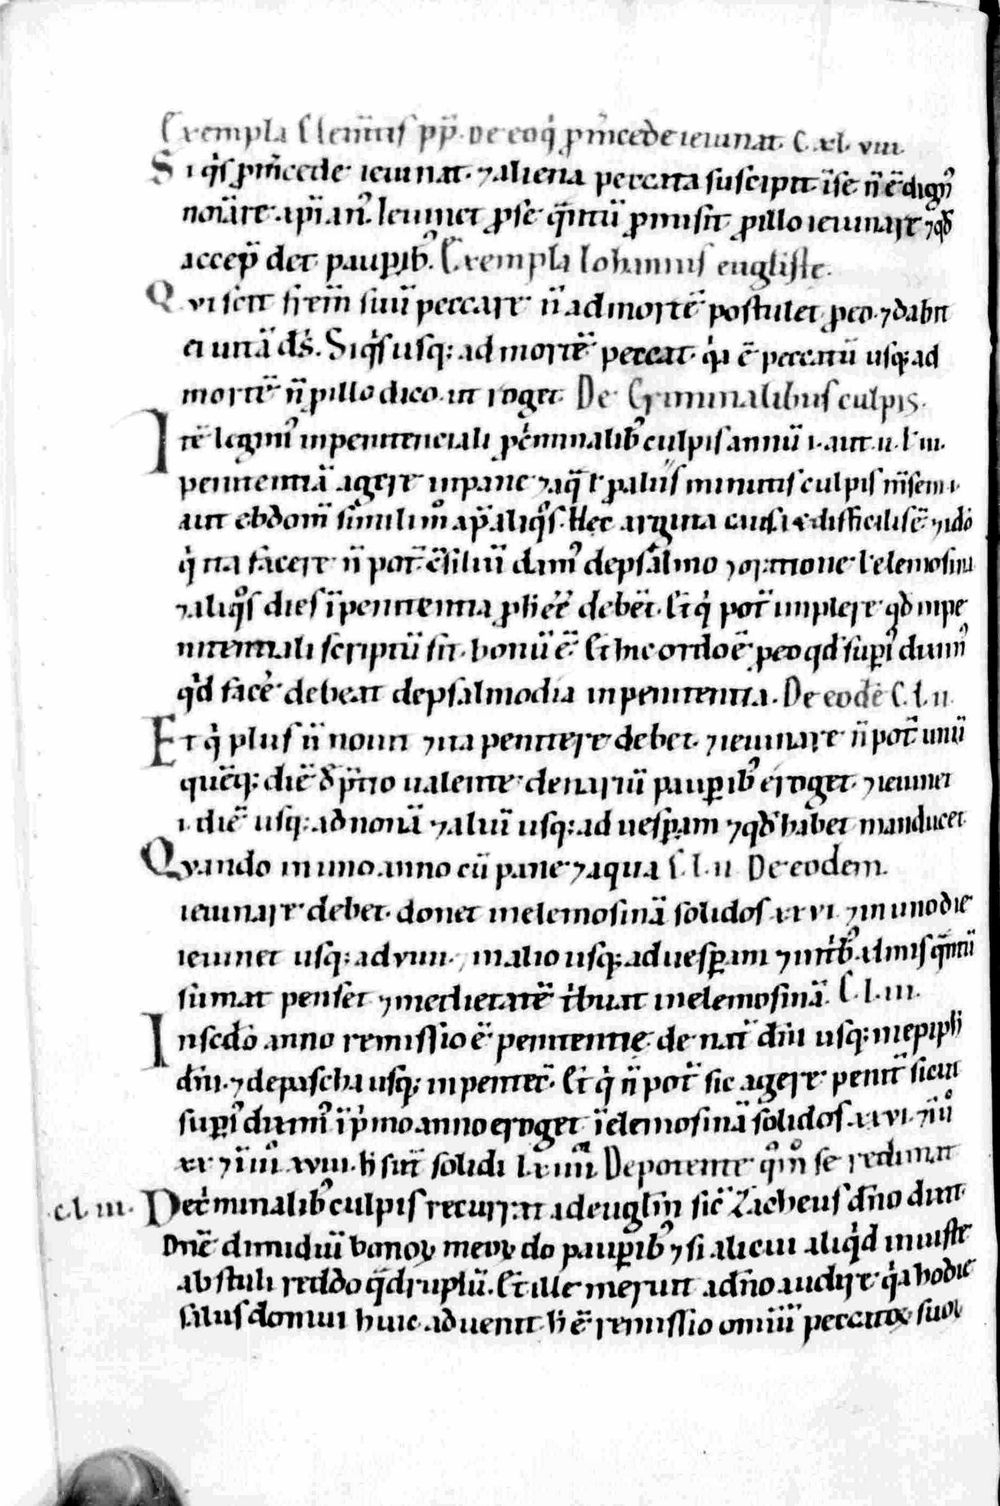 Exempla Clem̄tis pp̄. De eo q̇ ꝓ m̄cede ieiunat. C. xl. viii.
Si q̇s ꝓ m̄cede ieiunat. ⁊ aliena peccata suscipit ī se n̄ ē dignꝰ
noīare xp̄ianꝰ. Ieiunet ꝓ se q̄ntū ꝓmisit ꝓ illo ieiunare ⁊ qđ
accep̄ det pauꝑibꝰ. Exempla Iohannis eūgliste.
Qui scit fr̄em suū peccare n̄ ad mortē postulet ꝓ eo. ⁊ dabit
ei uitā dš. Si q̇s usq; ad mortē peccat. q̇a ē peccatū usq; ad
mortē n̄ ꝓ illo dico. ut roget. De Criminalibus culpis.
Itē legimꝰ in penitenciali ꝓ ċminalibꝫ culpis annū i. aut. ii. ł iii.
penitentiā agere in pane ⁊ aq̄ ł ꝓ aliis minutis culpis m̄sem i.
aut ebdom̄ simili m̊ ap̄ aliq̊s. Hec arguta causa ⁊ difficilis ē ⁊ idō
q̇ ita facere n̄ pot̄ c̄siliū damꝰ de psalmo ⁊ oratione ł elemosina
⁊ aliq̊s dies ī penitentia ꝓ h ee̅ debēt. Et̄ q̇ pot̄ implere qđ in pe
nitentiali scriptū sit. bonū ē. Et hic ordo ē ꝓ eo qđ supꝰ diximꝰ
qđ facē debeat de psalmodia in penitentia. De eodē C. l. ii.
Et q̇ plus n̄ nouit ⁊ ita penitere debet. ⁊ ieiunare n̄ pot̄ unū
quēq; diē đ p̄tio ualente denariū pauꝑibꝰ eroget. ⁊ ieiunet
i. diē usq; ad nonā ⁊ aliū usq; ad uesꝑam ⁊ qđ habet manducet
Quando in uno anno cū pane ⁊ aqua C. l. ii De eodem.
ieiunare debet. donet in elemosinā solidos xxvi. ⁊ in uno die
ieiunet usq; ad viiii. ⁊ in alio usq; ad uesꝑam ⁊ in trib̊. xlmis q̄ntū
sumat penset ⁊ medietatē ṫbuat in elemosinā. C. l. iii.
In sc̄do anno remissio ē penitentię de nat̄ dn̄i usq; in epiph̄
dn̄i. ⁊ de pascha usq; in pentec̄. Et̄ q̇ n̄ pot̄ sic agere penit̄ sicut
supꝰ diximꝰ ī p̊mo anno eroget ī elemosinā solidos xxvi. ⁊ ī iio
xx ⁊ ī iiio xviii. h̄ sūt solidi lxiiii De potente q̊m̊ se redimat
.c. l. iii. De ċminalibꝫ culpis recurrat ad eugłm sic̄ Zacheus dn̄o dixit.
Dn̄e dimidiū bonoꝝ meoꝝ do pauꝑibꝰ ⁊ si alicui aliq̇d iniuste
abstuli reddo q̄druplū. Et̄ ille meruit a dn̄o audire q̇a hodie
salus domui huic aduenit. h̄ ē remissio omniū peccatoꝝ suoꝝ